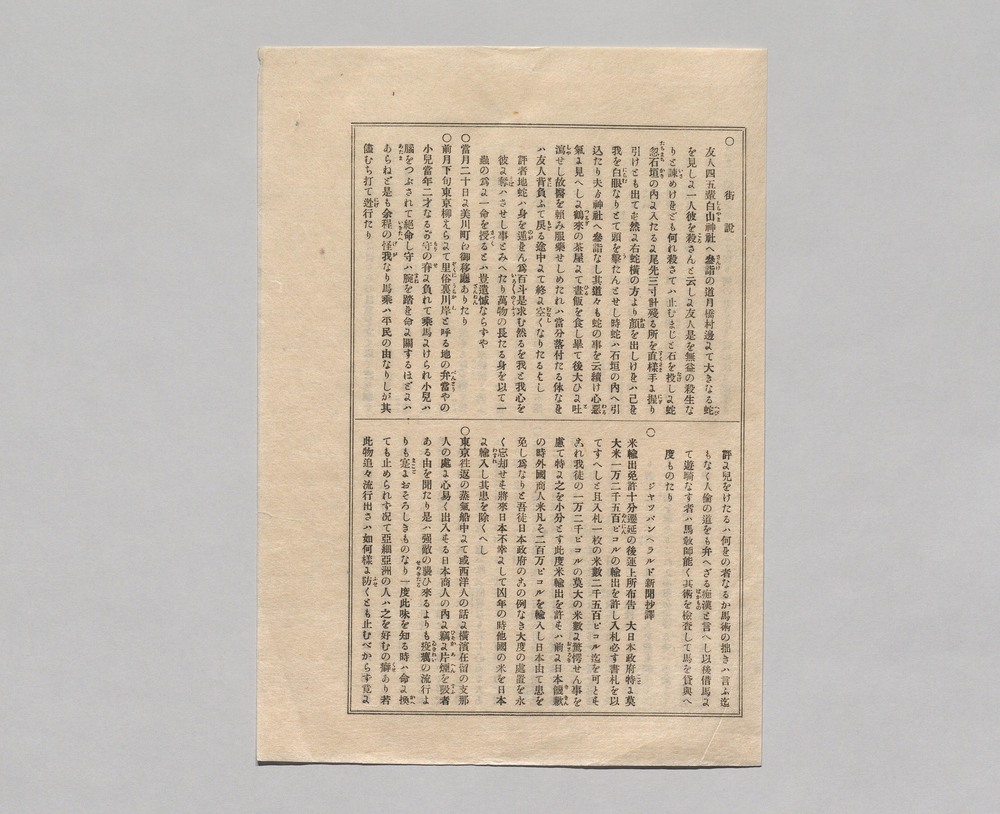 ○街說
友人四五輩白山神社へ參詣の道月橋村邊にて大きなる蛇
を見しに一人彼を殺さんと云しに友人是を無益の殺生な
りと諫めけれども何れ殺さでハ止むまじと石を投しに蛇
忽石垣の内に入たるに尾先三寸計殘る所を直樣手に握り
引けども出てず然に右蛇橫の方より顔を出しけれハ己を
我を白眼なりとて頭を擊たんとせし時蛇ハ石垣の內へ引
込たり夫ゟ神社へ參詣なし其道々も蛇の事を云續け心惡
氣に見へしに鶴來の茶屋にて晝飯を食し畢て後大ひに吐
瀉せし故醫を賴み服藥せしめたれハ當分落付たる体なれ
ハ友人背負ふて戾る途中にて終に空くなりたるよし
評者地蛇ハ身を遁れん爲百斗是求む然るを我と我心を
彼に奪ハさせし事とみへたり萬物の長たる身を以て一
蟲の爲に一命を授るとハ豈遺憾ならずや
○當月二十日に美川町ゟ御移廳ありたり
○前月下旬東京柳はらにて里俗裏川岸と呼る地の弁當やの
小兒當年二才なるお守の脊に負れて乘馬にけられ小兒ハ
腦をつぶされて絕命し守ハ腕を踏れ命に關するほどにハ
あらねど是も余程の怪我なり馬乘ハ平民の由なりしが其
儘むち打て迯行たり
評に兒をけたるハ何れの者なるか馬術の拙きハ言ふ迄
もなく人倫の道をも弁へざる痴漢と言へし以後借馬に
て遊騎なす者ハ馬敎師能く其術を檢査して馬を貸與へ
度ものたり
○ジヤツパンヘラルド新聞抄譯
米輸出免許十分遷延の後運上所布告 大日本政府特に莫
大米一万二千五百ピコルの輸出を許し入札必す書札を以
てすへしと且入札一枚の米數二千五百ピコル迄を可とす
これ我徒の一万二千ピコルの莫大の米數に驚愕せん事を
慮て特に之を小分とす此度米輸出を許すハ前に日本饑歉
の時外國商人米凡そ二百万ピコルを輸入し日本由て患を
免し爲なりと吾徒日本政府のこの例なき大度の處置を永
く忘却せす將來日本不幸にして凶年の時他國の米を日本
に輸入し其患を除くへし
○東京往返の蒸氣船中にて或西洋人の話に橫濱在留の支那
人の處に心易く出入する日本商人の內に竊に片煙を吸者
ある由を聞たり是ハ强敵の襲ひ來るよりも疫癘の流行よ
りも寔におそろしきものなり一度此味を知る時ハ命に換
ても止められす况て亞細亞洲の人ハ之を好むの癖あり若
此物追々流行出さハ如何樣に防くとも止むべからす竟に